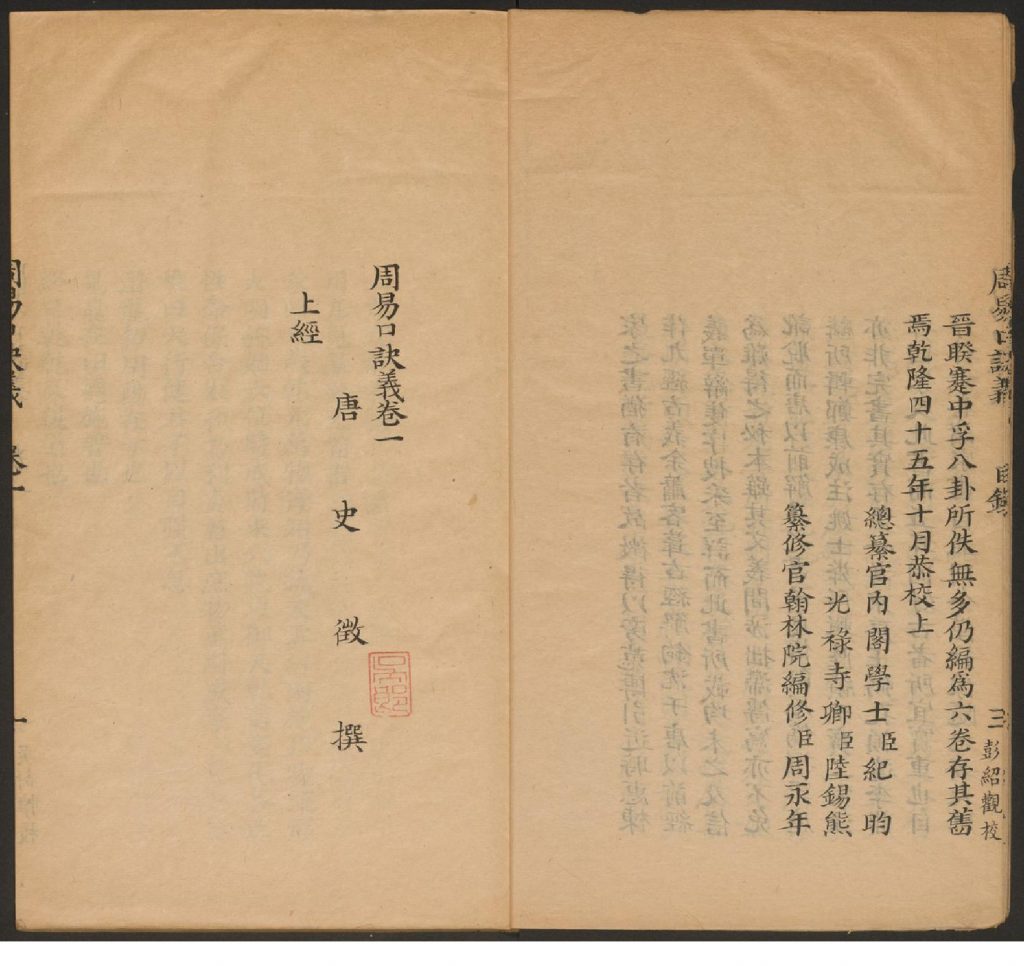 周易口訣義
目錄
三
彭紹觀校
晉睽蹇中孚八卦所佚無多仍編爲六卷存其舊
焉乾隆四十五年十月恭校上
總纂官內閣學士臣紀昀
光祿寺卿臣陸錫熊
纂修官翰林院編修臣周永年
周易口訣義卷一
唐史徵撰
上經
周易口訣義
卷一
一